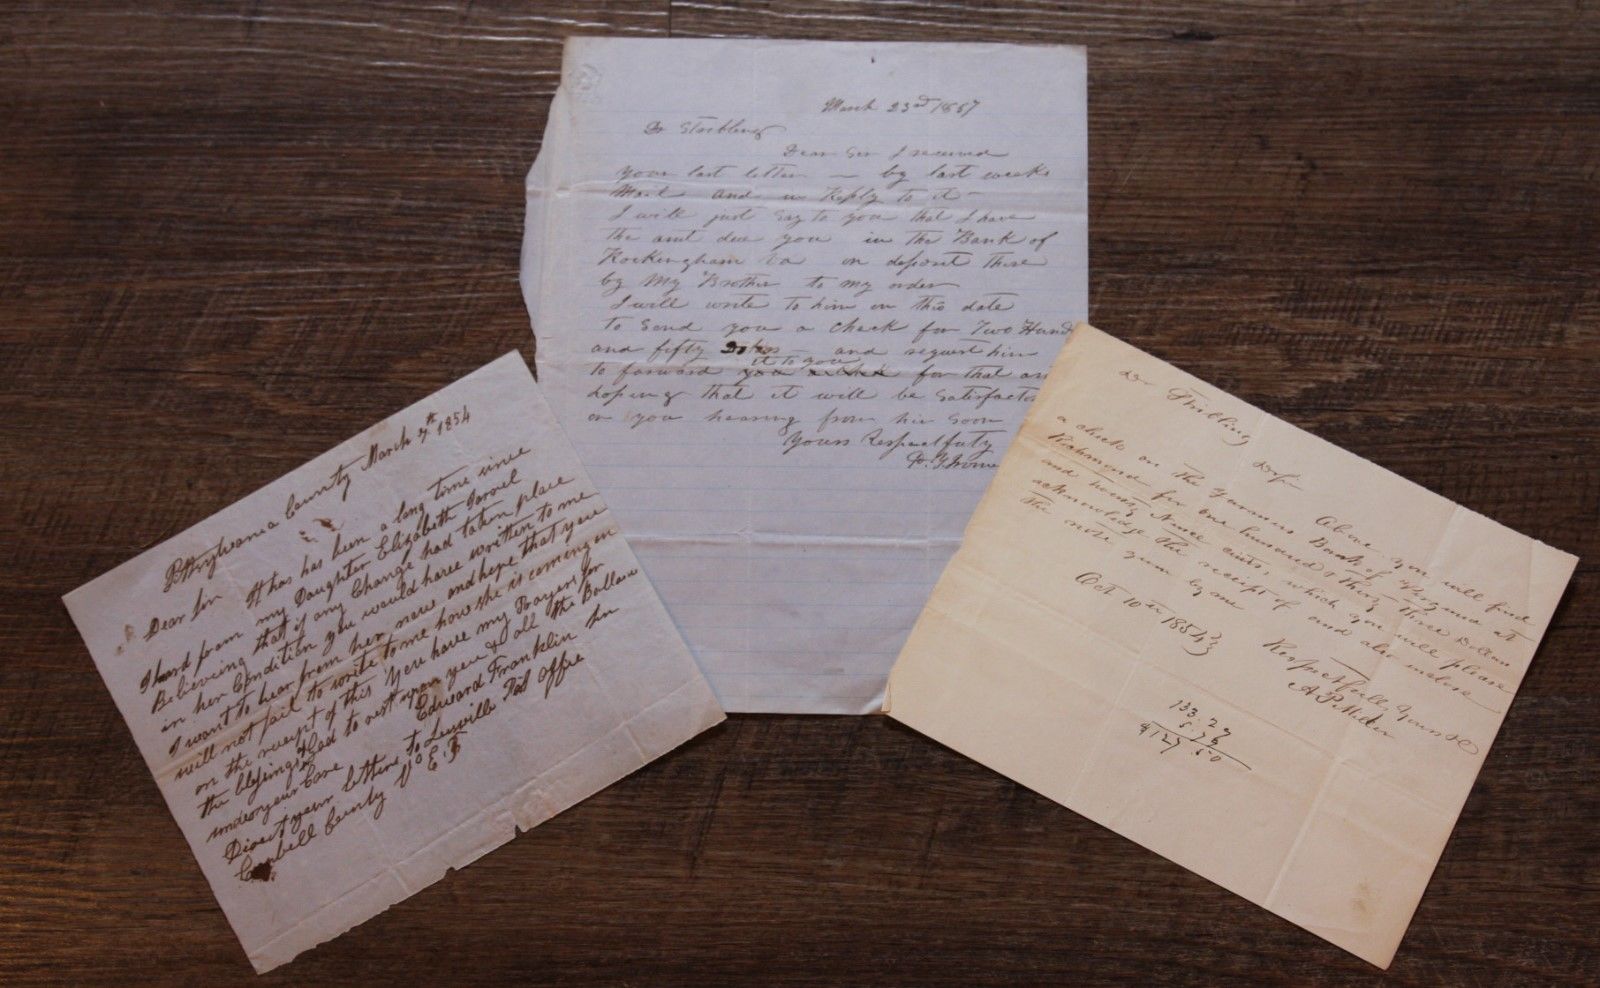 Pittsylvania County March 7th 1854
Dear Sir It has been a long time since
I heard from my Daughter Elizabeth
Believing that if any Change had taken place
in her Condition you would have written to me
I want to hear from her now and hope that you
will not fail to write to me how she is coming on
on the receipt of this You have my Prayers for
the blessings of God to rest upon you & all the Ballance
under your Care Edward Franklin Sen
Direct your letters to Leesville Post Offise
Cambell County Va E. F
March 23rd 1857
Dr Stribling
Dear Sir I received
your last letter — by last weeks
Mail and in Reply to it
I will just say to you that I have
the amt due you in the Bank of
Rockingham Va on deposit there
by My Brother to my order
I will write to him on this date
to Send you a Check for Two Hund
and fifty and request him
it to you
to forward you for that am
hoping that it will be Satisfacto
on you hearing from him Soon
Yours Respectfuly
Dr Stribling
Dr Sir
Above you will find
a check on the Farmers Bank of Virginia at
Richmond for one hundred & thirty Three Dollars
and twenty Nine cents, which you will please
acknowledge the receipt of and also inclose
the note given by me
Respectfully Yours &C
A. P. Miller
Oct 10th 1854
133.27
5.76
$127.50